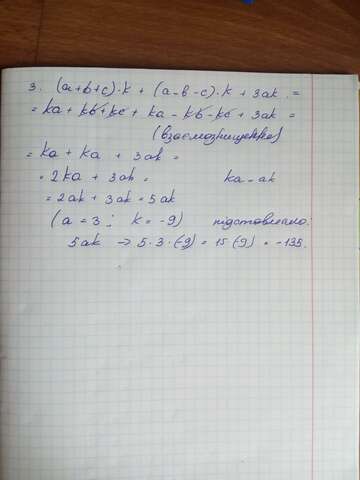 3. (a+b+c)·k + (a-b-c)·k + 3ak. =
= ka + kb + kc + ka - kb - kc + 3ak =
(взаємознищення)
= ka + ka + 3ak =
= 2ka + 3ak = ka - ak
= 2ak + 3ak = 5ak
(a = 3 ; k = -9) підставляємо.
5ak → 5·3·(-9) = 15(-9) = -135.